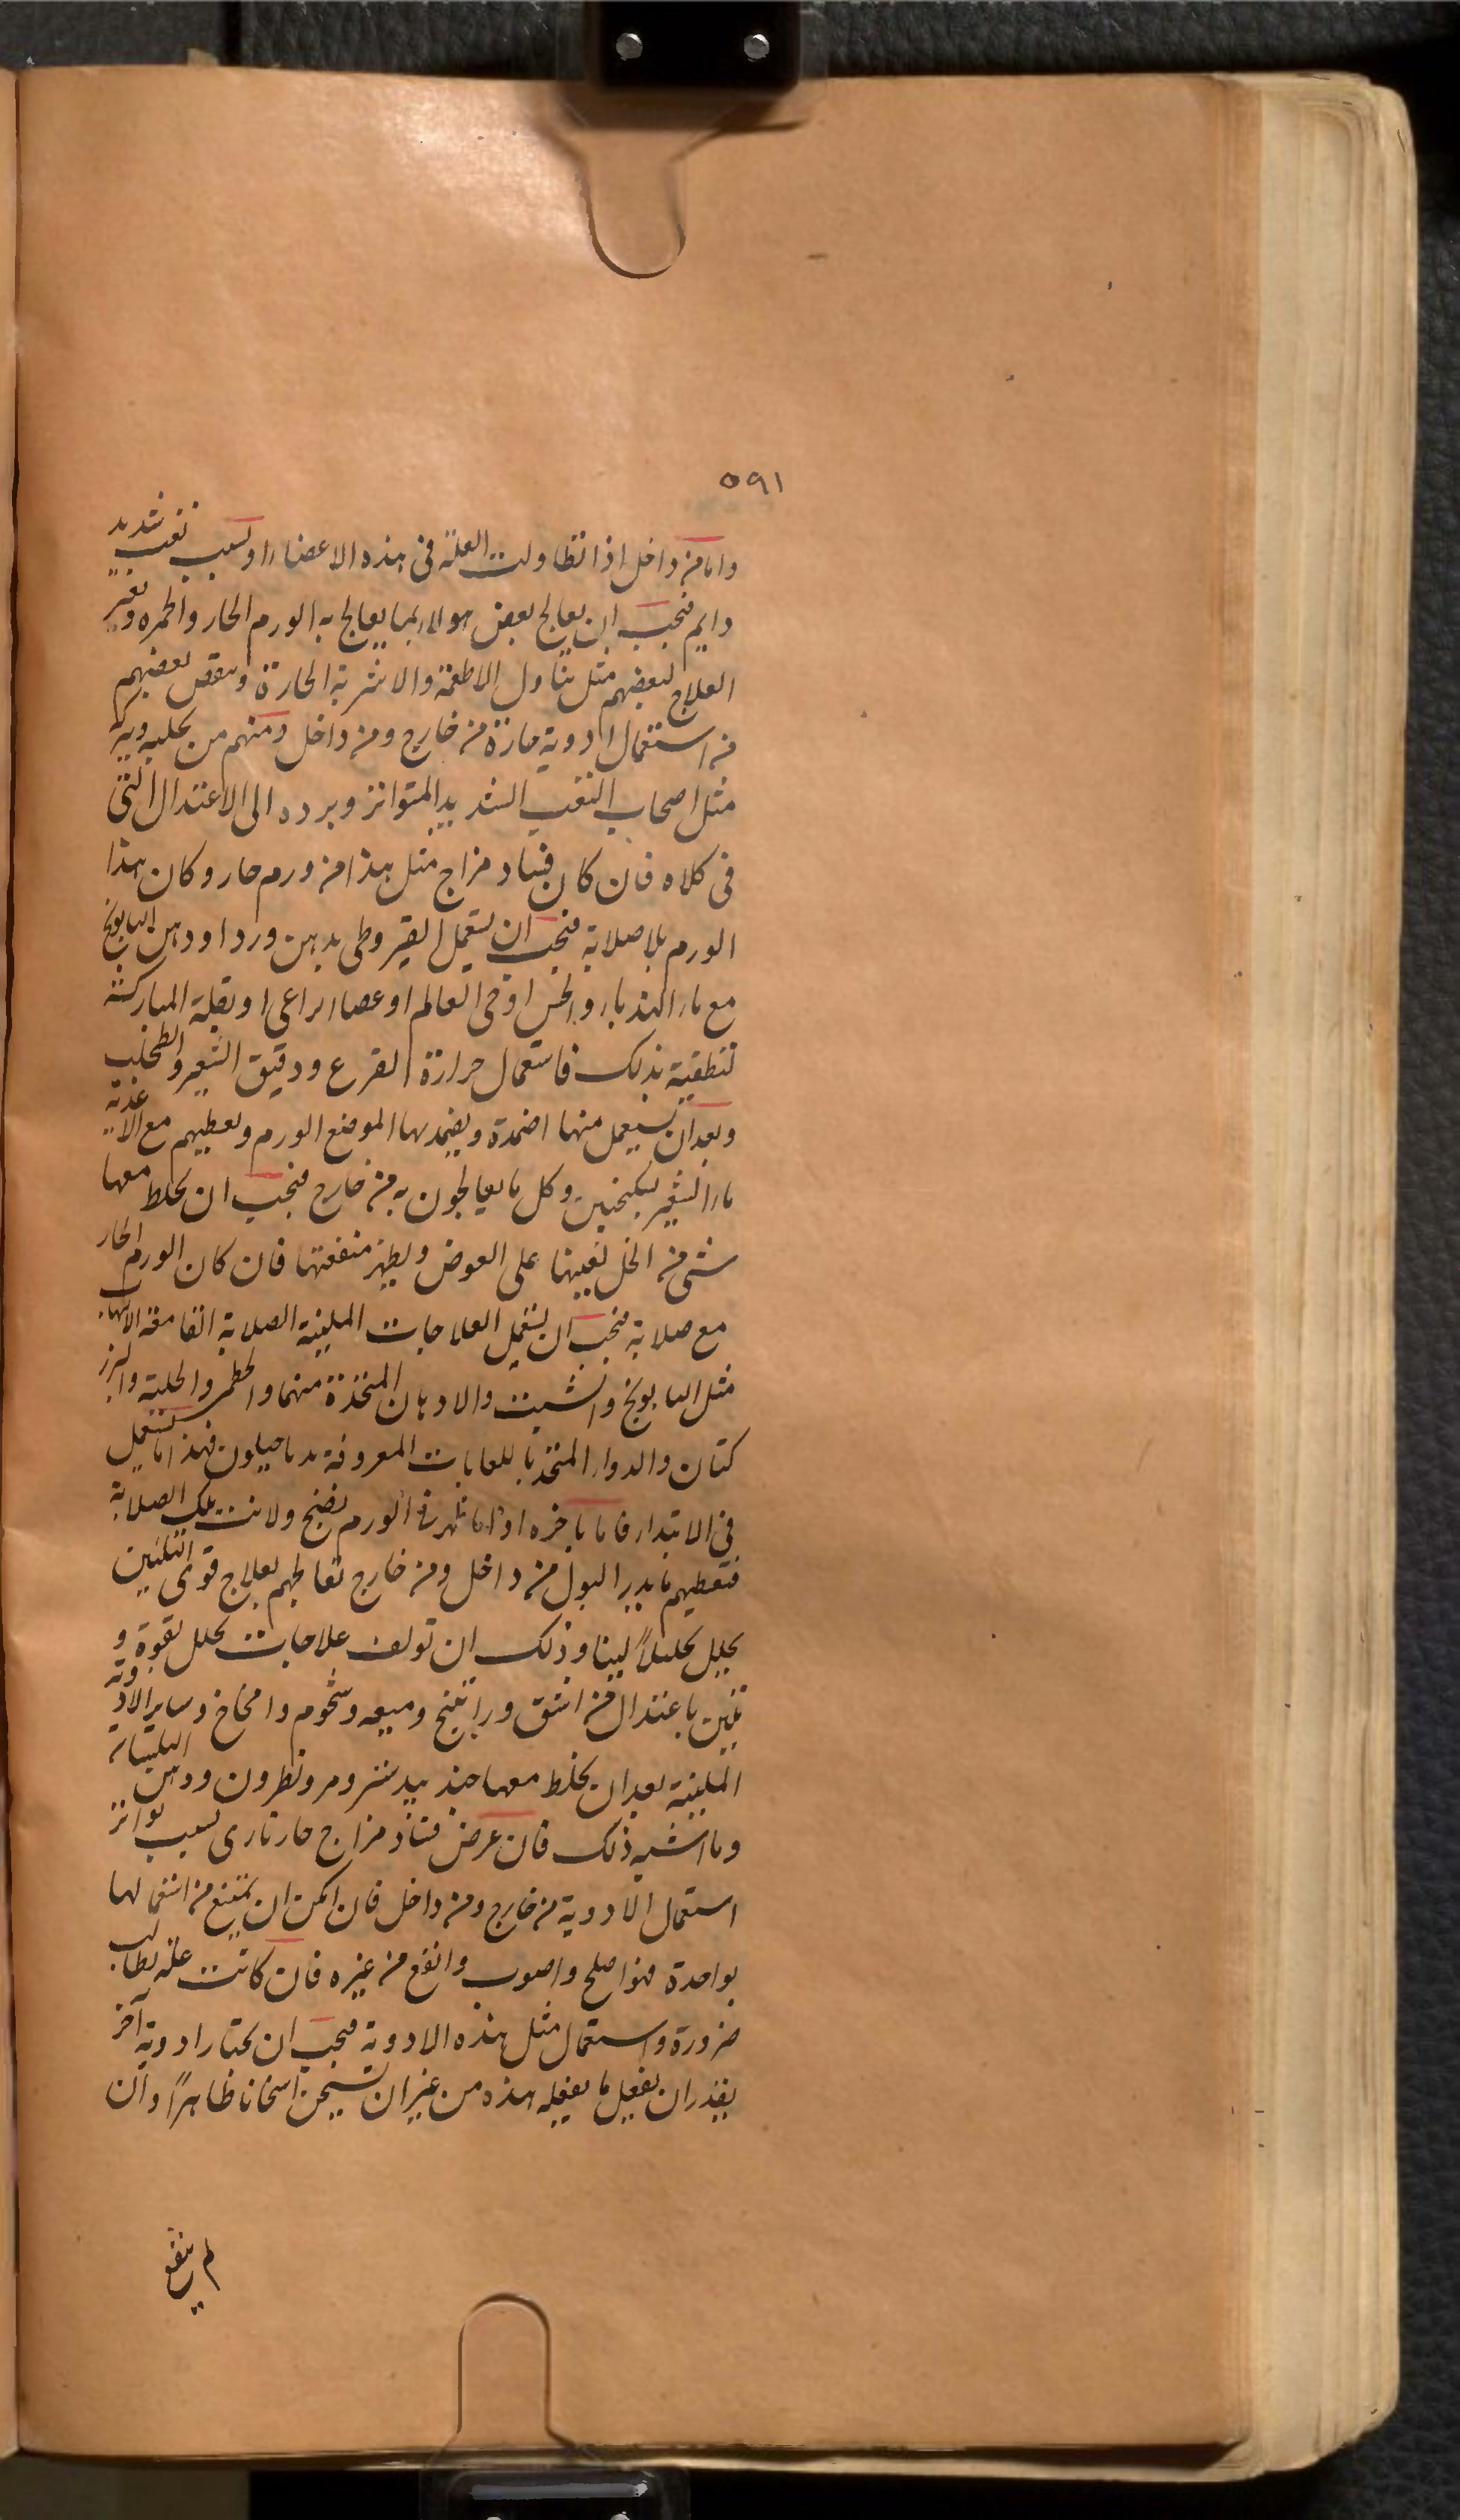 ٥٩١
واما من داخل اذا تطاولت العلة فى هذه الاعضاء او بسبب تعب شديد
دايم فيجب ان يعالج بعض هولاء بما يعالج به الورم الحار والحمره وتغير
العلاج لبعضهم مثل تناول الاطعمة والاشربة الحارة وبعض بعضهم
من استعمال ادوية حارة من خارج ومن داخل ومنهم من
مثل اصحاب التعب الشديد المتواتر وبرده الى الاعتدال التى
فى كلاه فان كان فساد مزاج مثل هذا من ورم حار وكان هذا
الورم بلا صلابة فيجب ان يستعمل القيروطى بدهن ورد او دهن البابونج
مع ماء الهندباء والخس او حى العالم او عصا الراعى او بقلة المباركة
لتطفية بذلك فاستعمال جرادة القرع ودقيق الشعير والطحلب
وبعد ان يستعمل منها اضمدة ويضمد بها الموضع الورم ويعطيهم مع الاغذية
ماء الشعير بسكنجبين وكل ما يعالجون به من خارج فيجب ان يخلط معها
شى من الخل لغيبها على العوض ويظهر منفعتها فان كان الورم الحار
مع صلابة فيجب ان يستعمل العلاجات الملينة الصلابة القامعة الالتهاب
مثل البابونج والشبت والادهان المتخذة منهما والخطمى والحلبة والبزر
كتان والدواء المتخذ باللعابات المعروفة بدياخيلون فهذا ما يستعمل
فى الابتداء فاما باخره او اذا ظهر فى الورم نضج ولانت تلك الصلابة
فتعطيهم ما يدر البول من داخل ومن خارج تعالجهم بعلاج قوى التليين
يحلل تحليلاً لينا وذلك ان تولف علاجات تحلل بقوة و
تلين باعتدال من اشق وراتينج وميعه وشحوم وامخاخ وساير الادوية
الملينة بعد ان يخلط معها جندبيدستر ومر ونطرون ودهن البلسان
وما اشبه ذلك فان عرض فساد مزاج حار نارى بسبب تواتر
استعمال الادوية من خارج ومن داخل فان امكن ان يمتنع من استعمالها
بواحدة فهو اصلح واصوب وانفع من غيره فان كانت علة تطالب
ضرورة واستعمال مثل هذه الادوية فيجب ان يختار ادوية آخر
يقدر ان يفعل ما يفعله هذه من غير ان تسخن اسخانا ظاهراً وان
لم ينفع